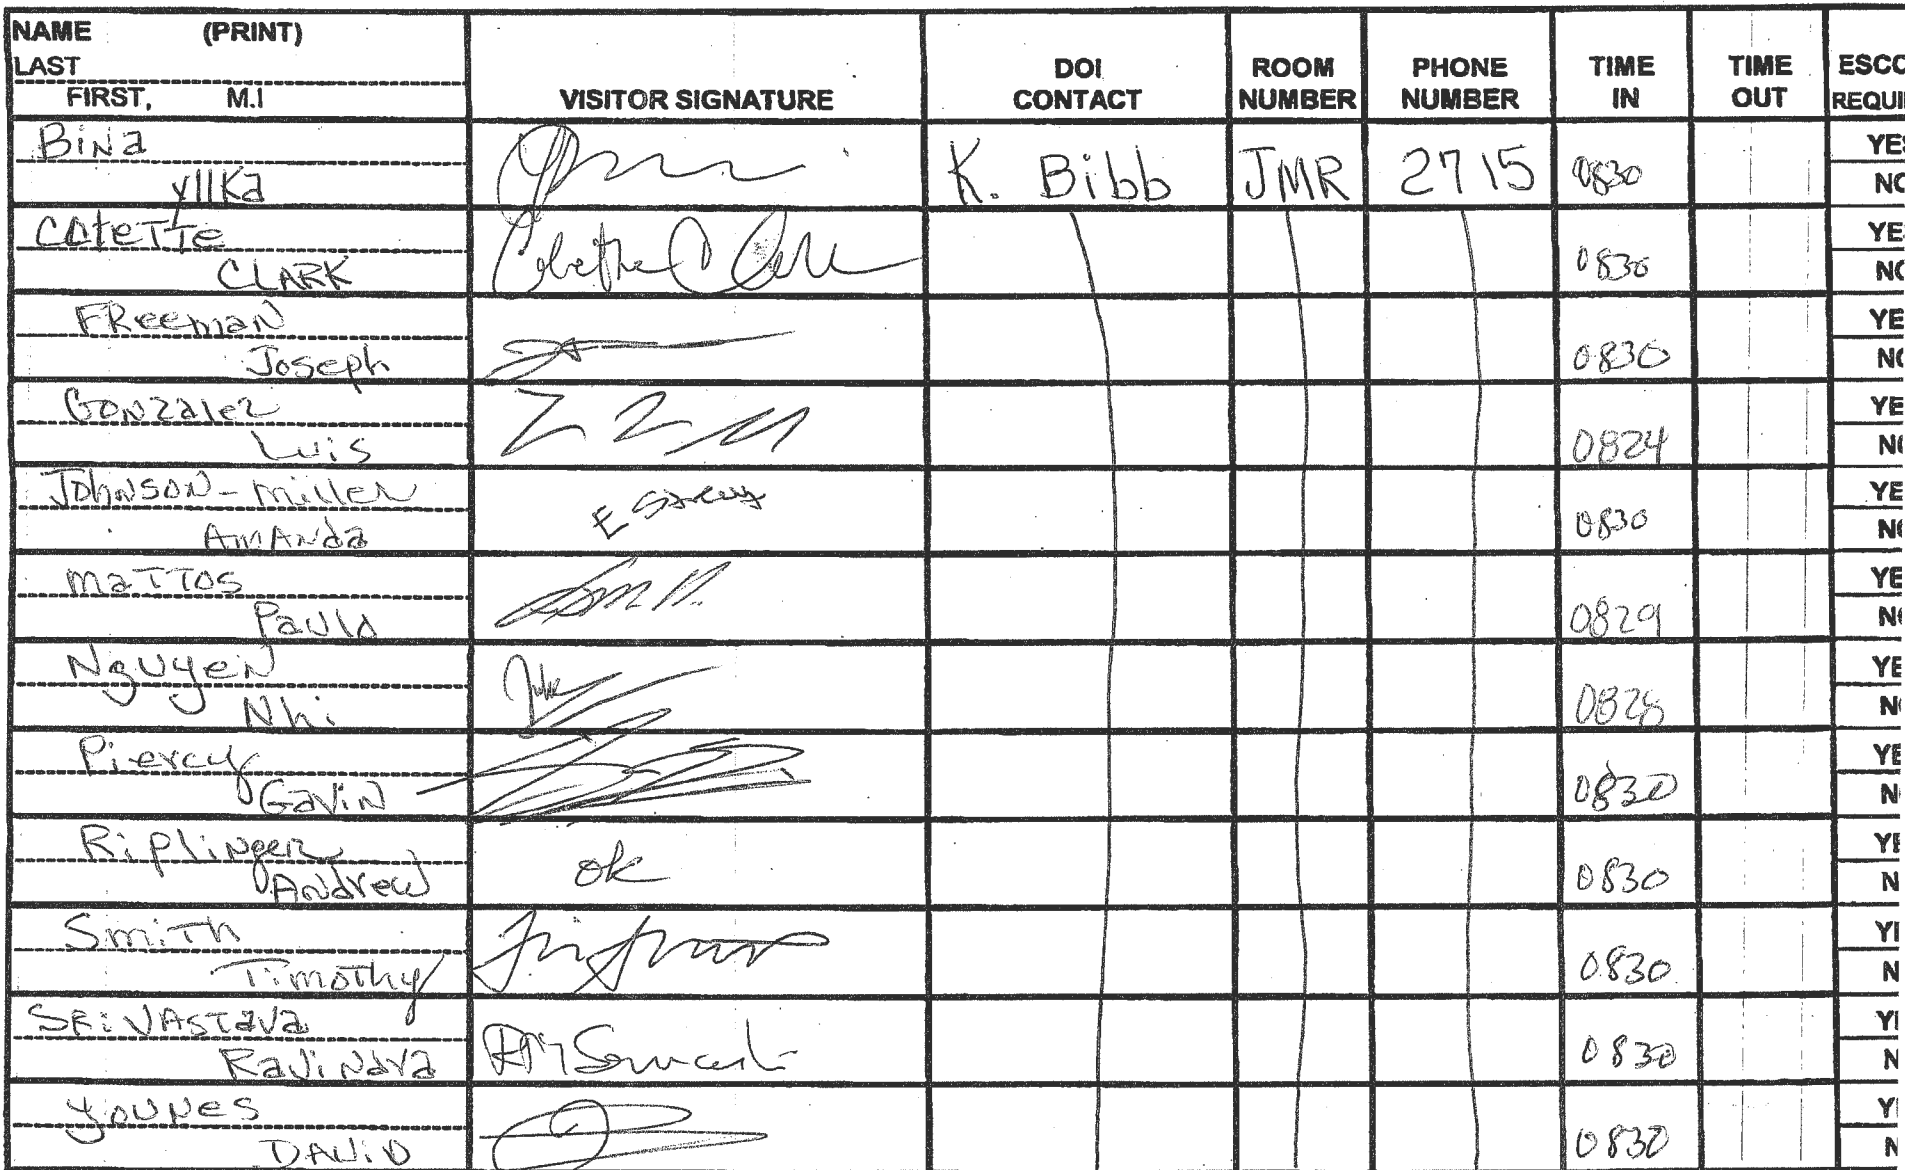 NAME (PRINT)
LAST
FIRST, M.I
VISITOR SIGNATURE
DOI CONTACT
ROOM NUMBER
PHONE NUMBER
TIME IN
TIME OUT
ESCO
REQUI
Bina
yllka
K. Bibb
JMR
2715
0830
YES
NO
Cotette
CLARK
0830
YES
NO
Freeman
Joseph
0830
YE
NO
Gonzalez
Luis
0824
YE
N
Johnson-Miller
Amanda
0830
YE
N
Mattos
Paulo
0829
YE
N
Nguyen
Nhi
0828
YE
N
Piercy
Gavin
0830
YE
N
Riplinger
Andrew
ok
0830
YE
N
Smith
Timothy
0830
YI
N
Srivastava
Ravindra
0830
YI
N
younes
DAViD
0830
Y
N